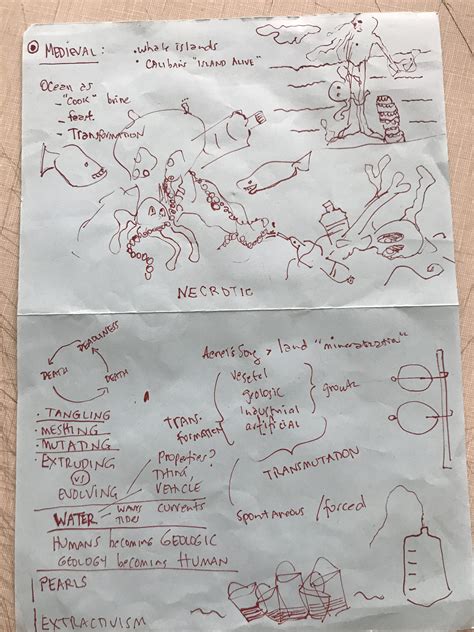 MEDIEVAL:
• Whale islands
• CALIBAN'S "ISLAND ALIVE"
Ocean as
– "cook" brine
– feast
– TRANSFORMATION
NECROTIC
DEADLINESS
DEATH
DEATH
Land "mineralization"
vegetal
geologic
industrial
artificial
growth
TRANS-
formation
TRANSMUTATION
Spontaneous / forced
• TANGLING
• MESHING
• MUTATING
• EXTRUDING
VS
EVOLVING
Properties?
VEHICLE
WATER
WAVES
TIDES
currents
HUMANS becoming GEOLOGIC
GEOLOGY becoming HUMAN
PEARLS
EXTRACTIVISM